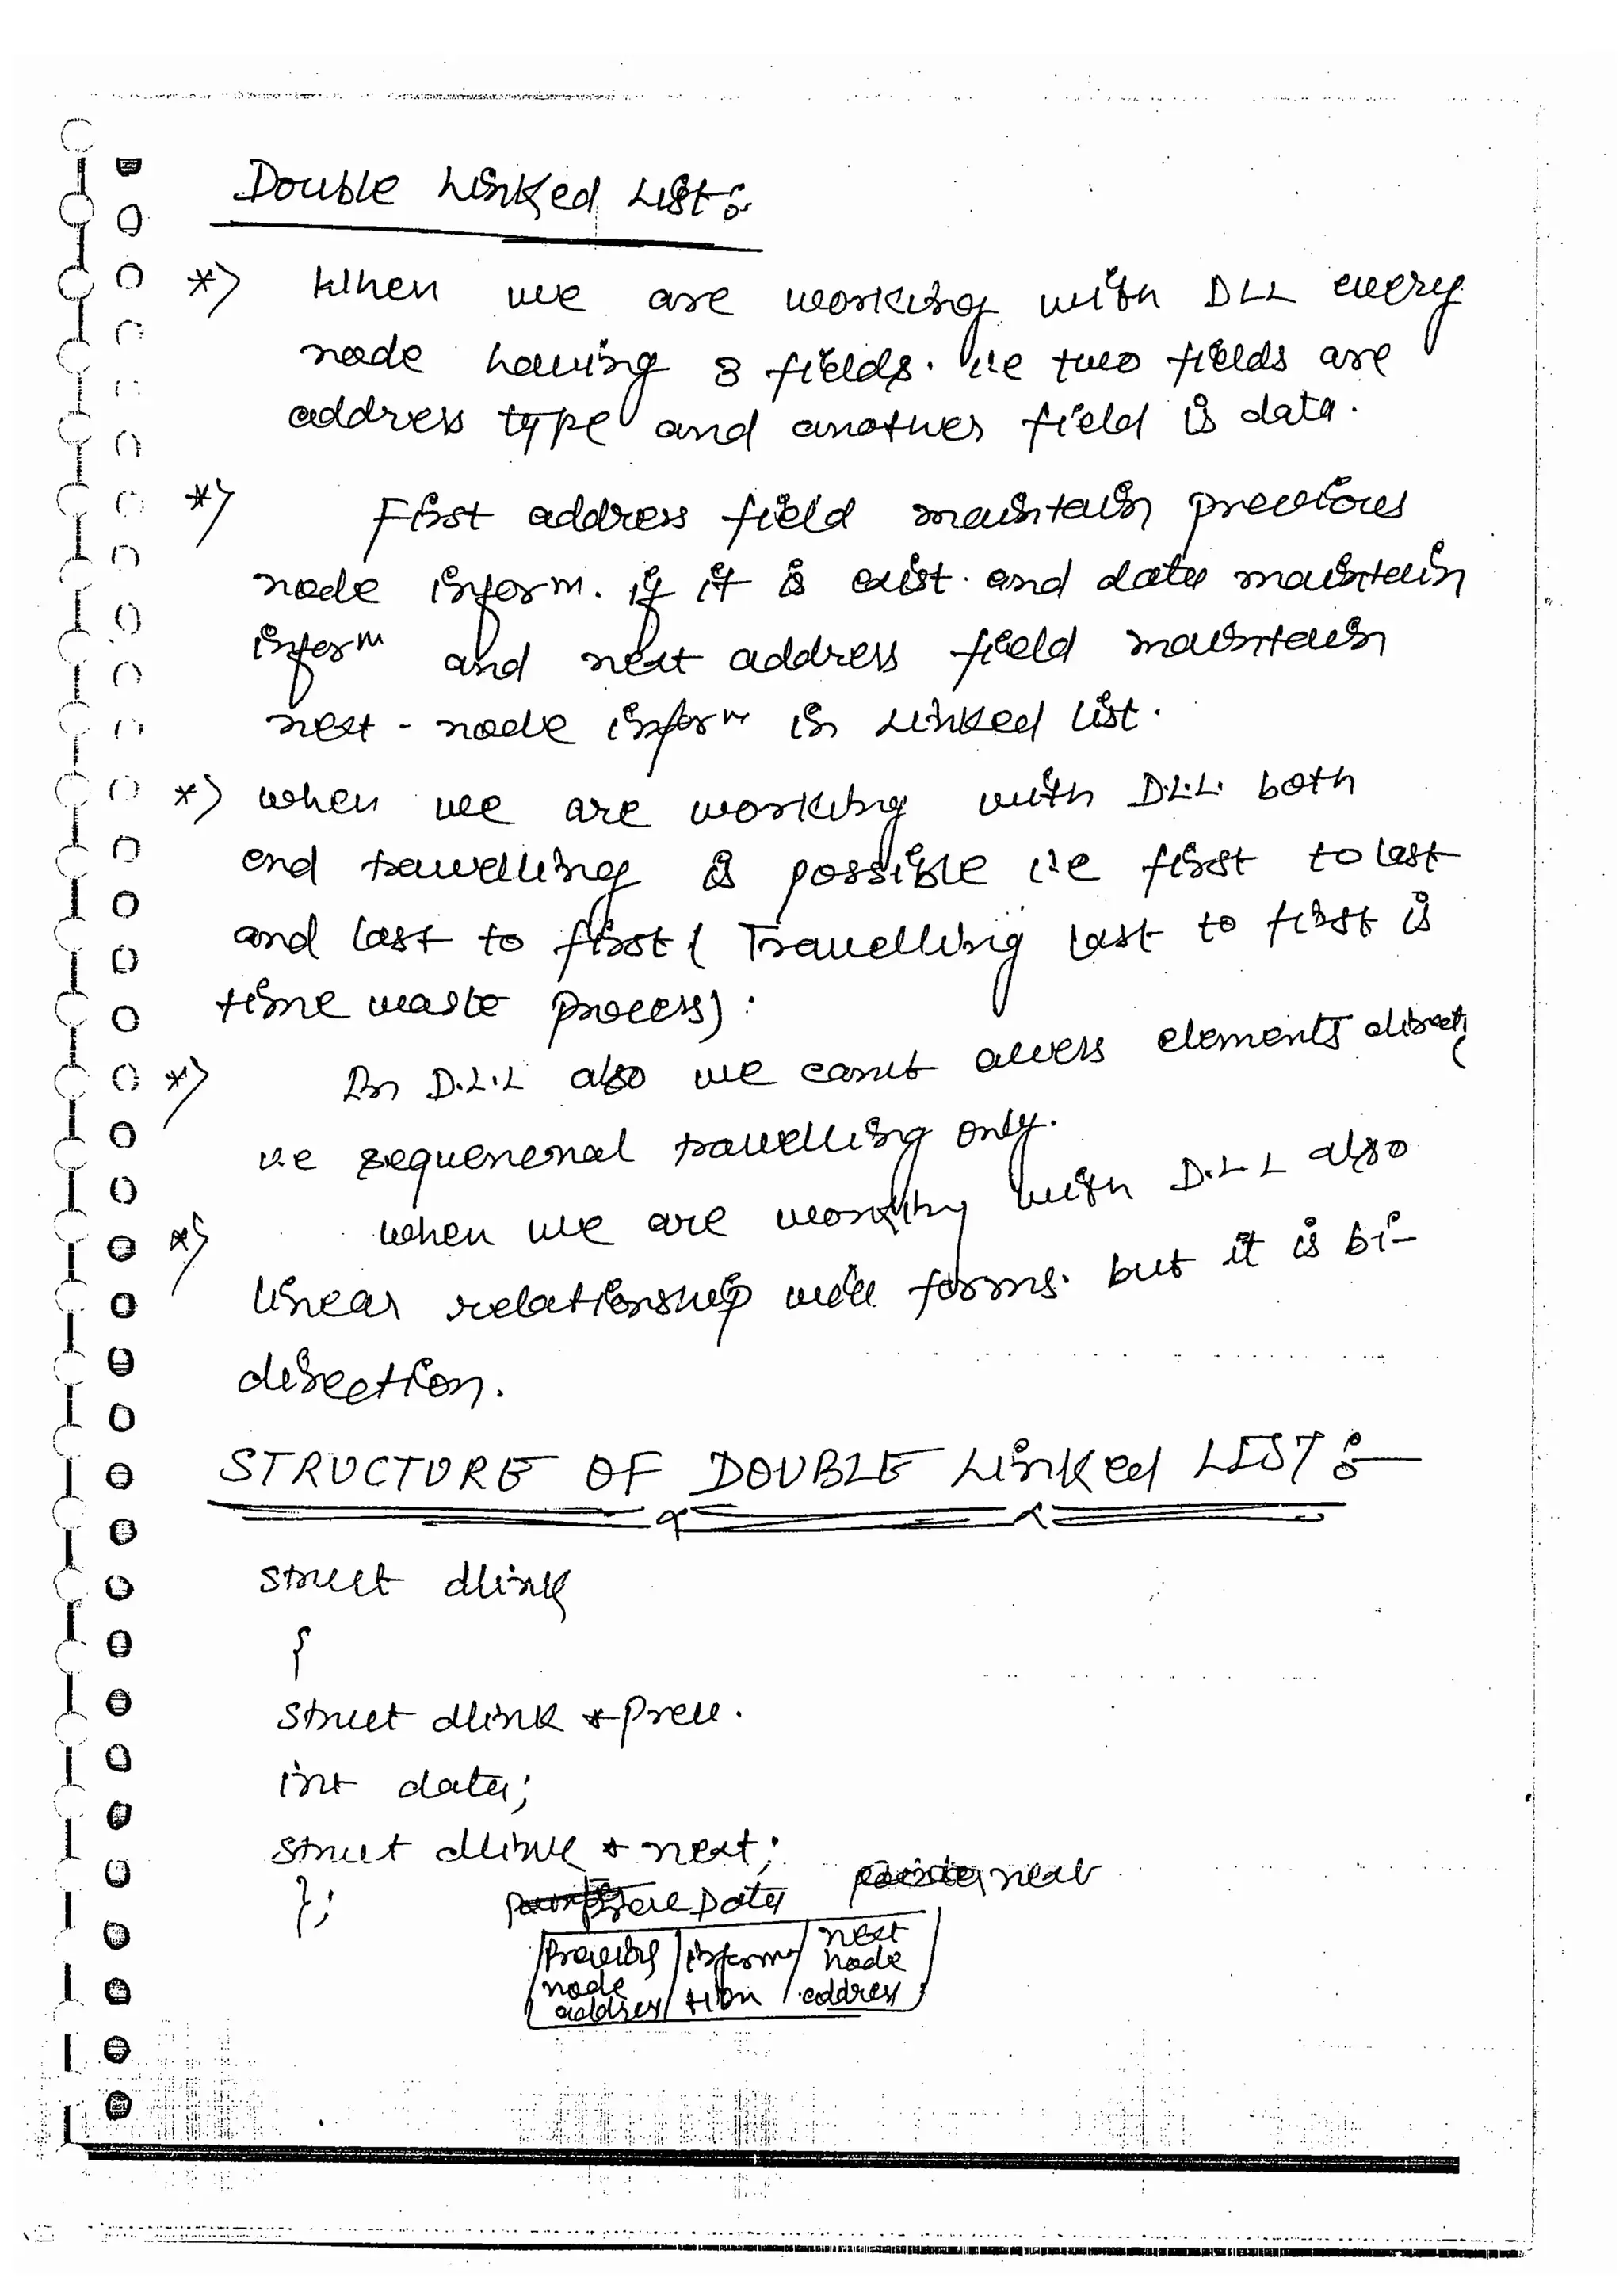 Double Linked List:
*) When we are working with DLL every
node having 3 fields. i.e two fields are
address type and another field is data.
*) First address field maintain previous
node inform. if it is exist. and data maintain
inform and next address field maintain
next - node inform in Linked list.
*) when we are working with D.L.L. both
end travelling is possible i.e first to last
and last to first ( Travelling last to first is
time waste process).
*) In D.L.L also we can't access elements direct
i.e sequenenal travelling only.
*) when we are working with D.L.L also
linear relationship will forms. but it is bi-
direction.
STRUCTURE OF DOUBLE Linked LIST :-
struct dlink
{
struct dlink *prev.
int data;
struct dlink * next;
};
Data next
Previous node address informa tion next node address